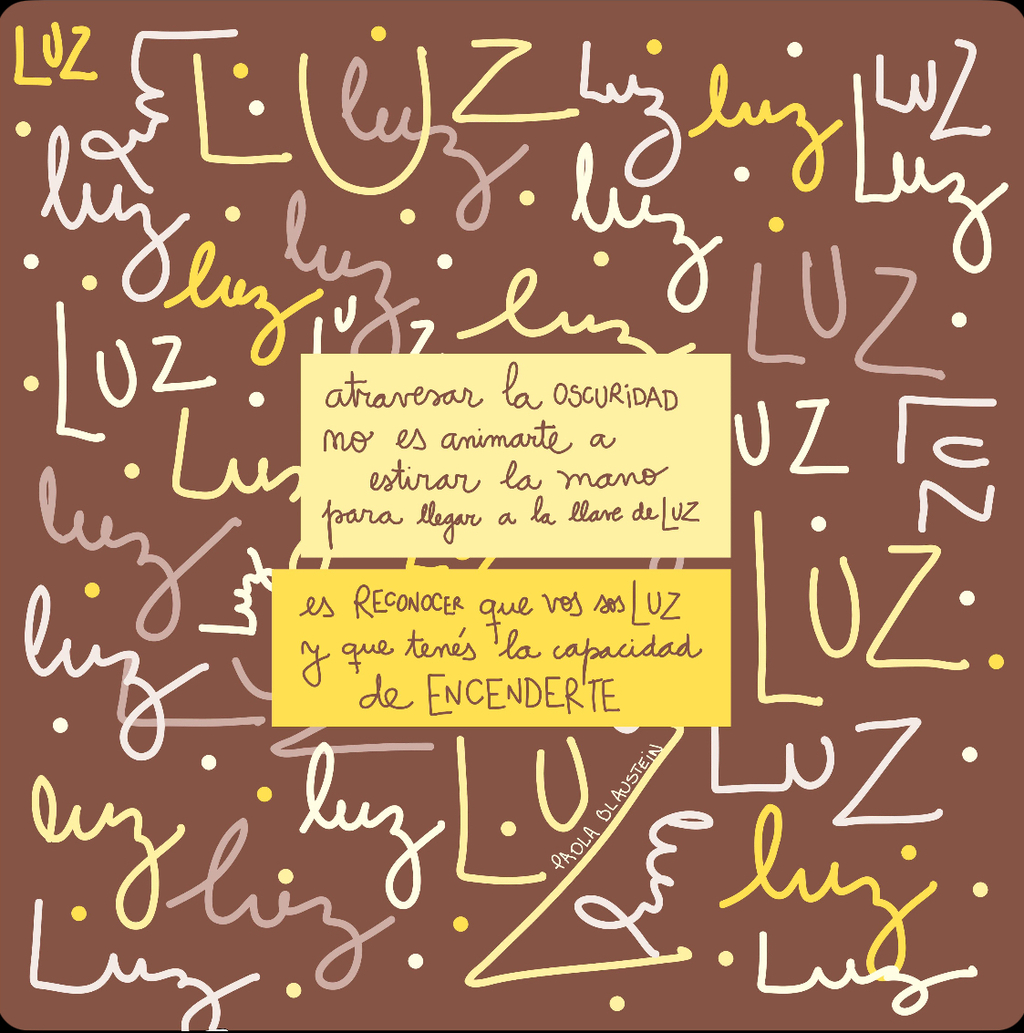 LUZ
luz
LUZ
luz
Luz
luz
LUZ
luz
luz
luz
Luz
luz
luz
LUZ
luz
LUZ
LUZ
Luz
atravesar la OSCURIDAD
no es animarte a
estirar la mano
para llegar a la llave de LUZ
UZ
LUZ
luz
Luz
LUZ
es RECONOCER que vos sos LUZ
y que tenés la capacidad
de ENCENDERTE
luz
LUZ
PAOLA BLAUSTEIN
LUZ
luz
luz
luz
luz
luz
Luz
Luz